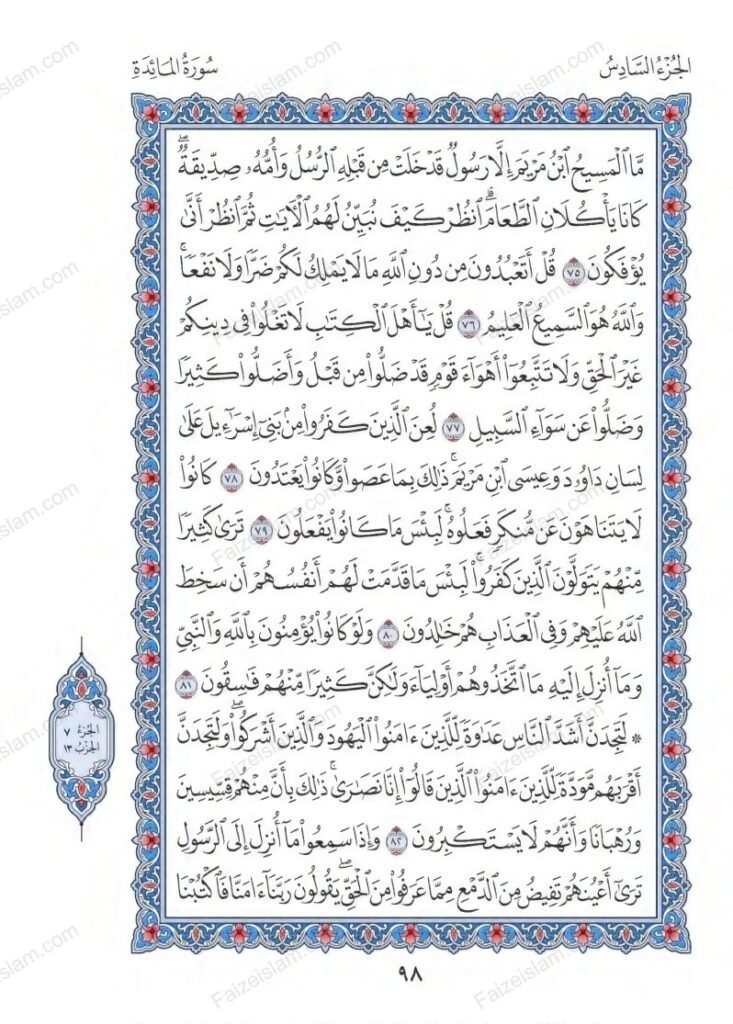 الجُزْءُ السَّادِسُ
سُورَةُ المَائِدَةِ
مَّا ٱلْمَسِيحُ ٱبْنُ مَرْيَمَ إِلَّا رَسُولٌ قَدْ خَلَتْ مِن قَبْلِهِ ٱلرُّسُلُ وَأُمُّهُۥ صِدِّيقَةٌۖ
كَانَا يَأْكُلَانِ ٱلطَّعَامَۗ ٱنظُرْ كَيْفَ نُبَيِّنُ لَهُمُ ٱلْأَيَٰتِ ثُمَّ ٱنظُرْ أَنَّىٰ
يُؤْفَكُونَ ٧٥ قُلْ أَتَعْبُدُونَ مِن دُونِ ٱللَّهِ مَا لَا يَمْلِكُ لَكُمْ ضَرًّا وَلَا نَفْعًاۚ
وَٱللَّهُ هُوَ ٱلسَّمِيعُ ٱلْعَلِيمُ ٧٦ قُلْ يَٰٓأَهْلَ ٱلْكِتَٰبِ لَا تَغْلُوا۟ فِى دِينِكُمْ
غَيْرَ ٱلْحَقِّ وَلَا تَتَّبِعُوٓا۟ أَهْوَآءَ قَوْمٍ قَدْ ضَلُّوا۟ مِن قَبْلُ وَأَضَلُّوا۟ كَثِيرًا
وَضَلُّوا۟ عَن سَوَآءِ ٱلسَّبِيلِ ٧٧ لُعِنَ ٱلَّذِينَ كَفَرُوا۟ مِنۢ بَنِىٓ إِسْرَٰٓءِيلَ عَلَىٰ
لِسَانِ دَاوُۥدَ وَعِيسَى ٱبْنِ مَرْيَمَۚ ذَٰلِكَ بِمَا عَصَوا۟ وَّكَانُوا۟ يَعْتَدُونَ ٧٨ كَانُوا۟
لَا يَتَنَاهَوْنَ عَن مُّنكَرٍ فَعَلُوهُۚ لَبِئْسَ مَا كَانُوا۟ يَفْعَلُونَ ٧٩ تَرَىٰ كَثِيرًا
مِّنْهُمْ يَتَوَلَّوْنَ ٱلَّذِينَ كَفَرُوا۟ۚ لَبِئْسَ مَا قَدَّمَتْ لَهُمْ أَنفُسُهُمْ أَن سَخِطَ
ٱللَّهُ عَلَيْهِمْ وَفِى ٱلْعَذَابِ هُمْ خَٰلِدُونَ ٨٠ وَلَوْ كَانُوا۟ يُؤْمِنُونَ بِٱللَّهِ وَٱلنَّبِىِّ
وَمَآ أُنزِلَ إِلَيْهِ مَا ٱتَّخَذُوهُمْ أَوْلِيَآءَ وَلَٰكِنَّ كَثِيرًا مِّنْهُمْ فَٰسِقُونَ ٨١
۞ لَتَجِدَنَّ أَشَدَّ ٱلنَّاسِ عَدَٰوَةً لِّلَّذِينَ ءَامَنُوا۟ ٱلْيَهُودَ وَٱلَّذِينَ أَشْرَكُوا۟ۖ وَلَتَجِدَنَّ
أَقْرَبَهُم مَّوَدَّةً لِّلَّذِينَ ءَامَنُوا۟ ٱلَّذِينَ قَالُوٓا۟ إِنَّا نَصَٰرَىٰۚ ذَٰلِكَ بِأَنَّ مِنْهُمْ قِسِّيسِينَ
وَرُهْبَانًا وَأَنَّهُمْ لَا يَسْتَكْبِرُونَ ٨٢ وَإِذَا سَمِعُوا۟ مَآ أُنزِلَ إِلَى ٱلرَّسُولِ
تَرَىٰٓ أَعْيُنَهُمْ تَفِيضُ مِنَ ٱلدَّمْعِ مِمَّا عَرَفُوا۟ مِنَ ٱلْحَقِّۖ يَقُولُونَ رَبَّنَآ ءَامَنَّا فَٱكْتُبْنَا
الجُزْءُ ٧
الحِزْبُ ١٣
٩٨
Faizeislam.com